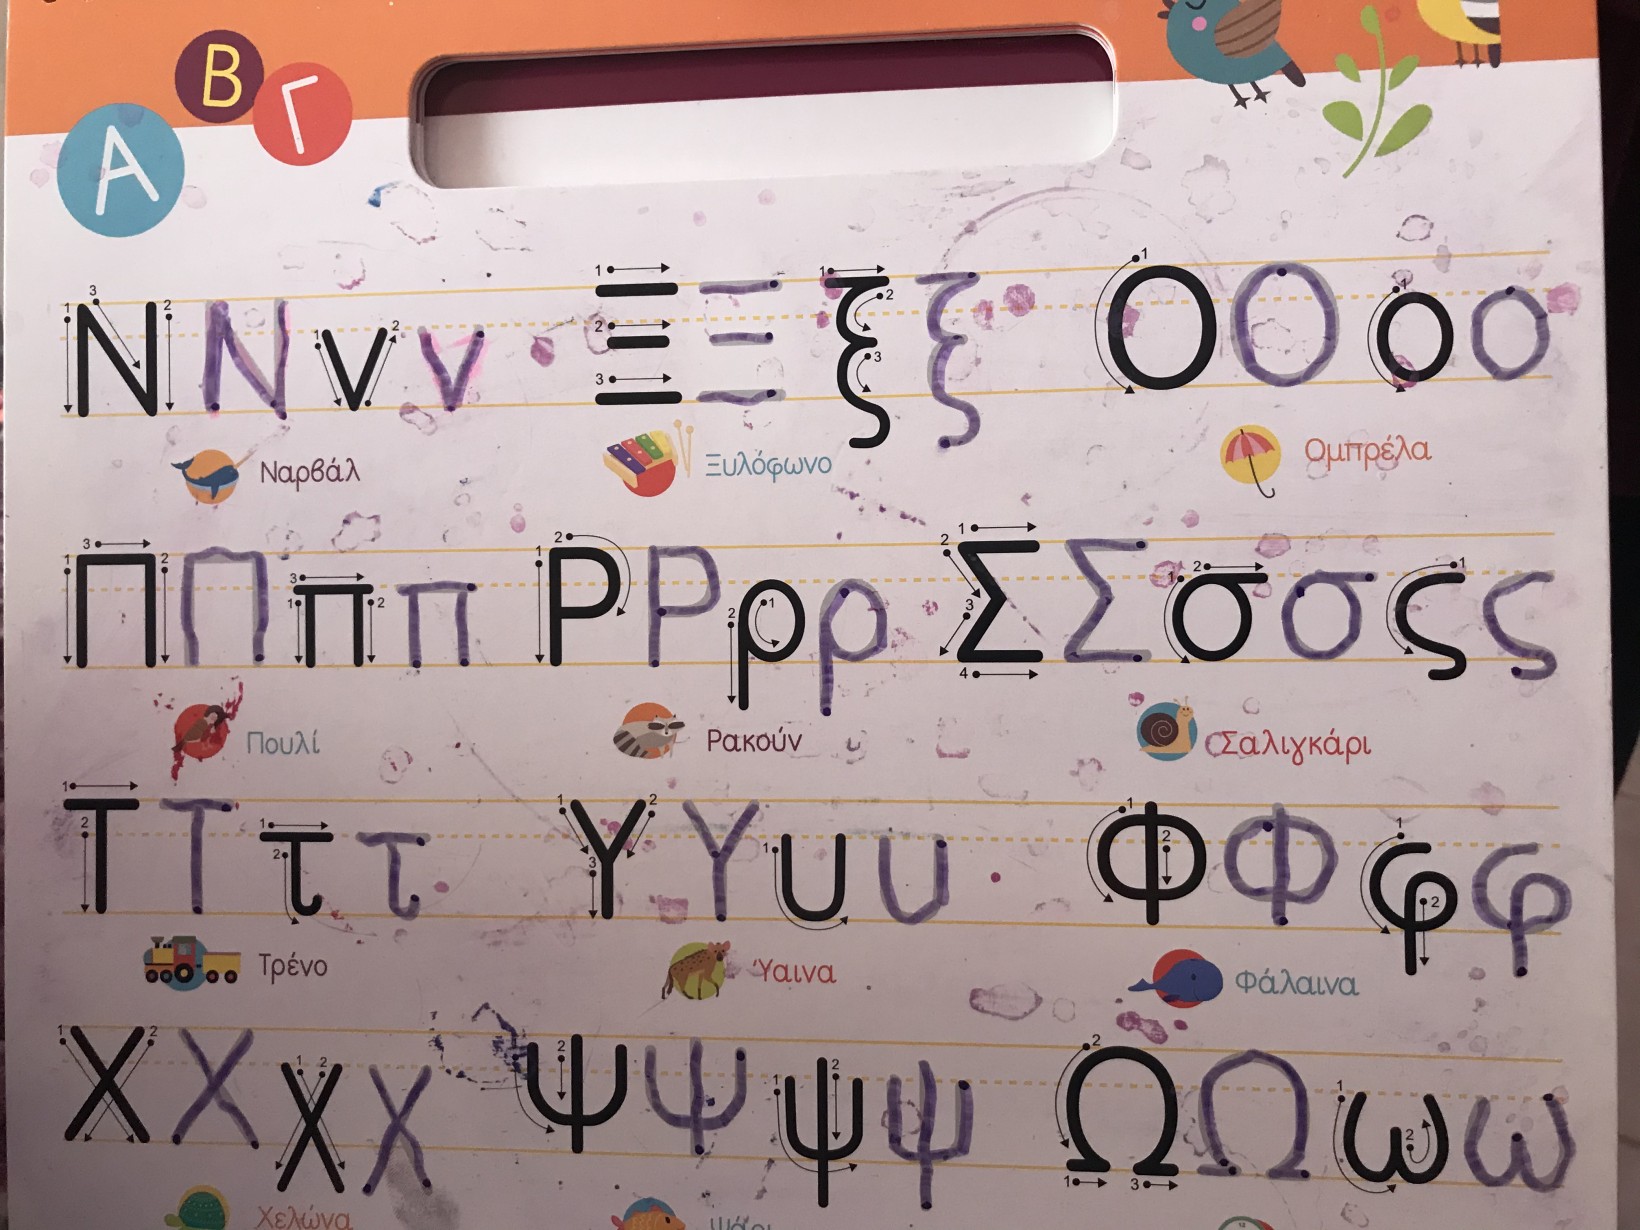 Α Β Γ
Ν Ν ν ν Ξ Ξ ξ ξ Ο Ο ο ο
Ναρβάλ Ξυλόφωνο Ομπρέλα
Π Π π π Ρ Ρ ρ ρ Σ Σ σ σ ς ς
Πουλί Ρακούν Σαλιγκάρι
Τ Τ τ τ Υ Υ υ υ Φ Φ φ φ
Τρένο Ύαινα Φάλαινα
Χ Χ χ χ Ψ Ψ ψ ψ Ω Ω ω ω
Χελώνα Ψάρι